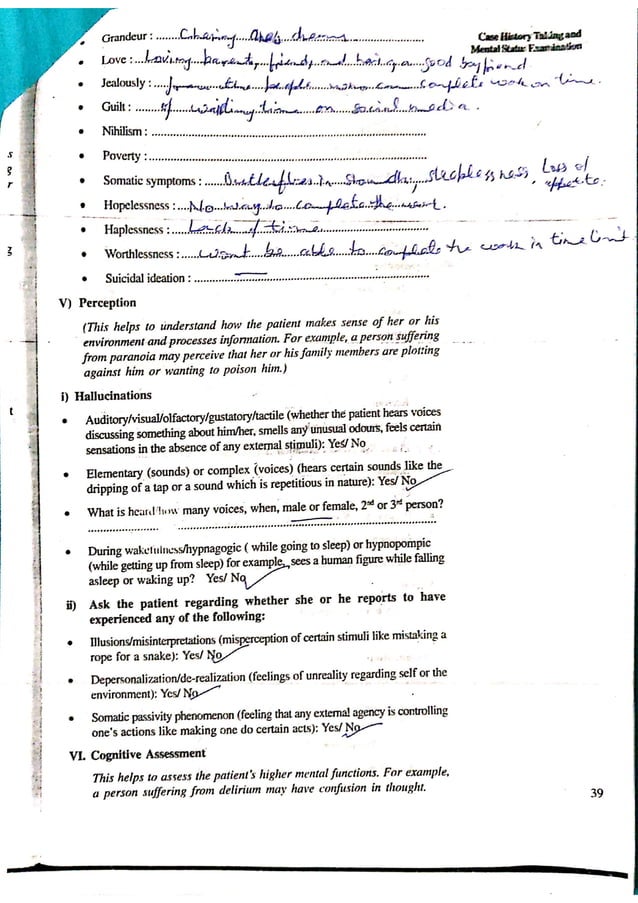 Case History Taking and
Mental Status Examination
• Grandeur :
• Love : Loving parents, friends and having a good boyfriend
• Jealously : people complete work on time.
• Guilt : of wasting time on social media.
• Nihilism :
• Poverty :
• Somatic symptoms : Butterflies in sleeplessness, Loss of
appetite.
• Hopelessness : No way to complete the work.
• Haplessness : Lack of time
• Worthlessness : Wont be able to complete the work in time limit
• Suicidal ideation : —
V) Perception
(This helps to understand how the patient makes sense of her or his
environment and processes information. For example, a person suffering
from paranoia may perceive that her or his family members are plotting
against him or wanting to poison him.)
i) Hallucinations
• Auditory/visual/olfactory/gustatory/tactile (whether the patient hears voices
discussing something about him/her, smells any unusual odours, feels certain
sensations in the absence of any external stimuli): Yes/ No
• Elementary (sounds) or complex (voices) (hears certain sounds like the
dripping of a tap or a sound which is repetitious in nature): Yes/ No
• What is heard/how many voices, when, male or female, 2nd or 3rd person?
• During wakefulness/hypnagogic ( while going to sleep) or hypnopompic
(while getting up from sleep) for example, sees a human figure while falling
asleep or waking up? Yes/ No
ii) Ask the patient regarding whether she or he reports to have
experienced any of the following:
• Illusions/misinterpretations (misperception of certain stimuli like mistaking a
rope for a snake): Yes/ No
• Depersonalization/de-realization (feelings of unreality regarding self or the
environment): Yes/ No
• Somatic passivity phenomenon (feeling that any external agency is controlling
one's actions like making one do certain acts): Yes/ No
VI. Cognitive Assessment
This helps to assess the patient's higher mental functions. For example,
a person suffering from delirium may have confusion in thought.
39
s
g
r
g
t